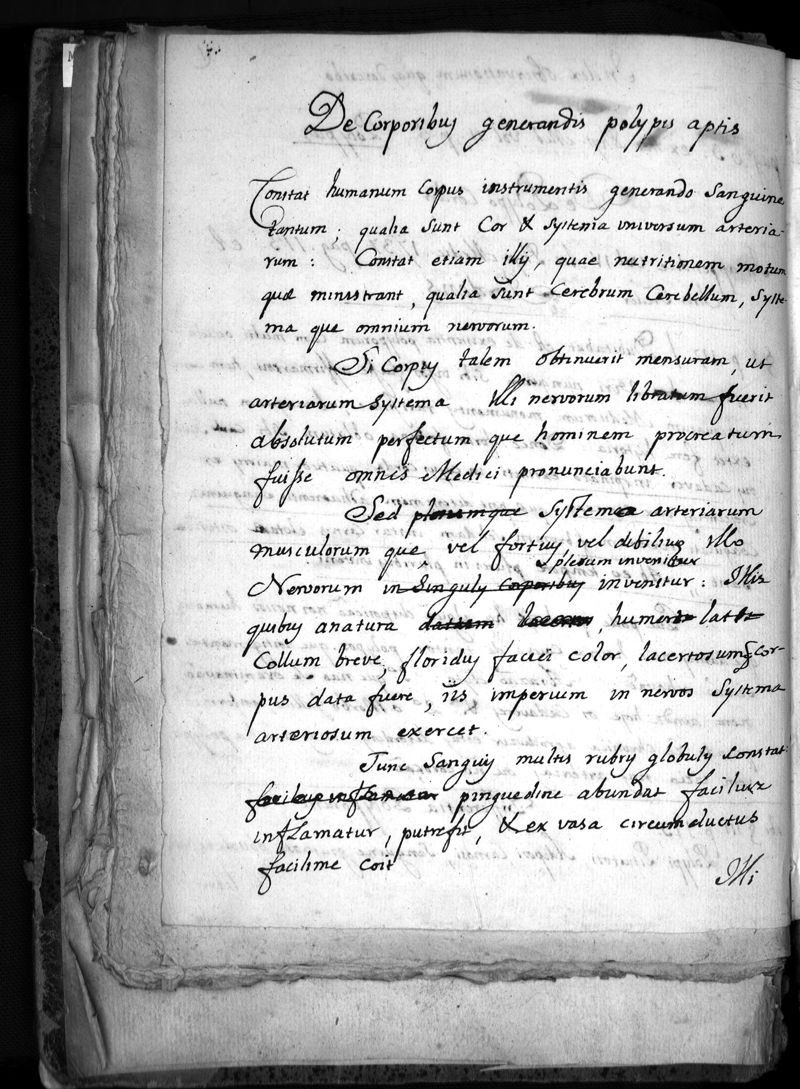 De Corporibus generandis polypis aptis
Constat humanum corpus instrumentis generando Sanguine
tantum. qualia sunt Cor & systema universum arteria-
rum: Constat etiam illis, quae nutritionem motum
quae ministrant, qualia sunt Cerebrum Cerebellum, syste-
ma que omnium nervorum.
Si Corpus talem obtinuerit mensuram, ut
arteriarum systema illi nervorum libratum fuerit
absolutum perfectum que hominem procreatum
fuisse omnes Medici pronunciabunt.
Sed plerumque systema arteriarum
musculorum que vel fortius vel debilius illo
sple[...]um invenitur
Nervorum in singulis corporibus invenitur: Illis
quibus a natura datum, humeri lati
Collum breve, floridus faciei color, lacertosumq; cor-
pus data fuere, iis imperium in nervos systema
arteriosum exercet.
Tunc Sanguis multis rubris globulis constat
facilius inflammatur pinguedine abundat facilius
inflamatur, putrefit, & ex vasa circumductus
facilime coit
Illi